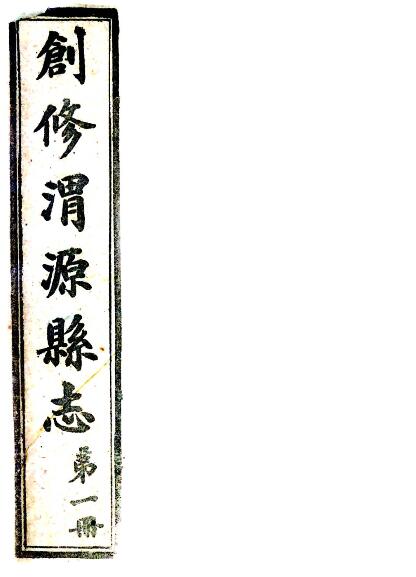 創修渭源縣志
第一冊